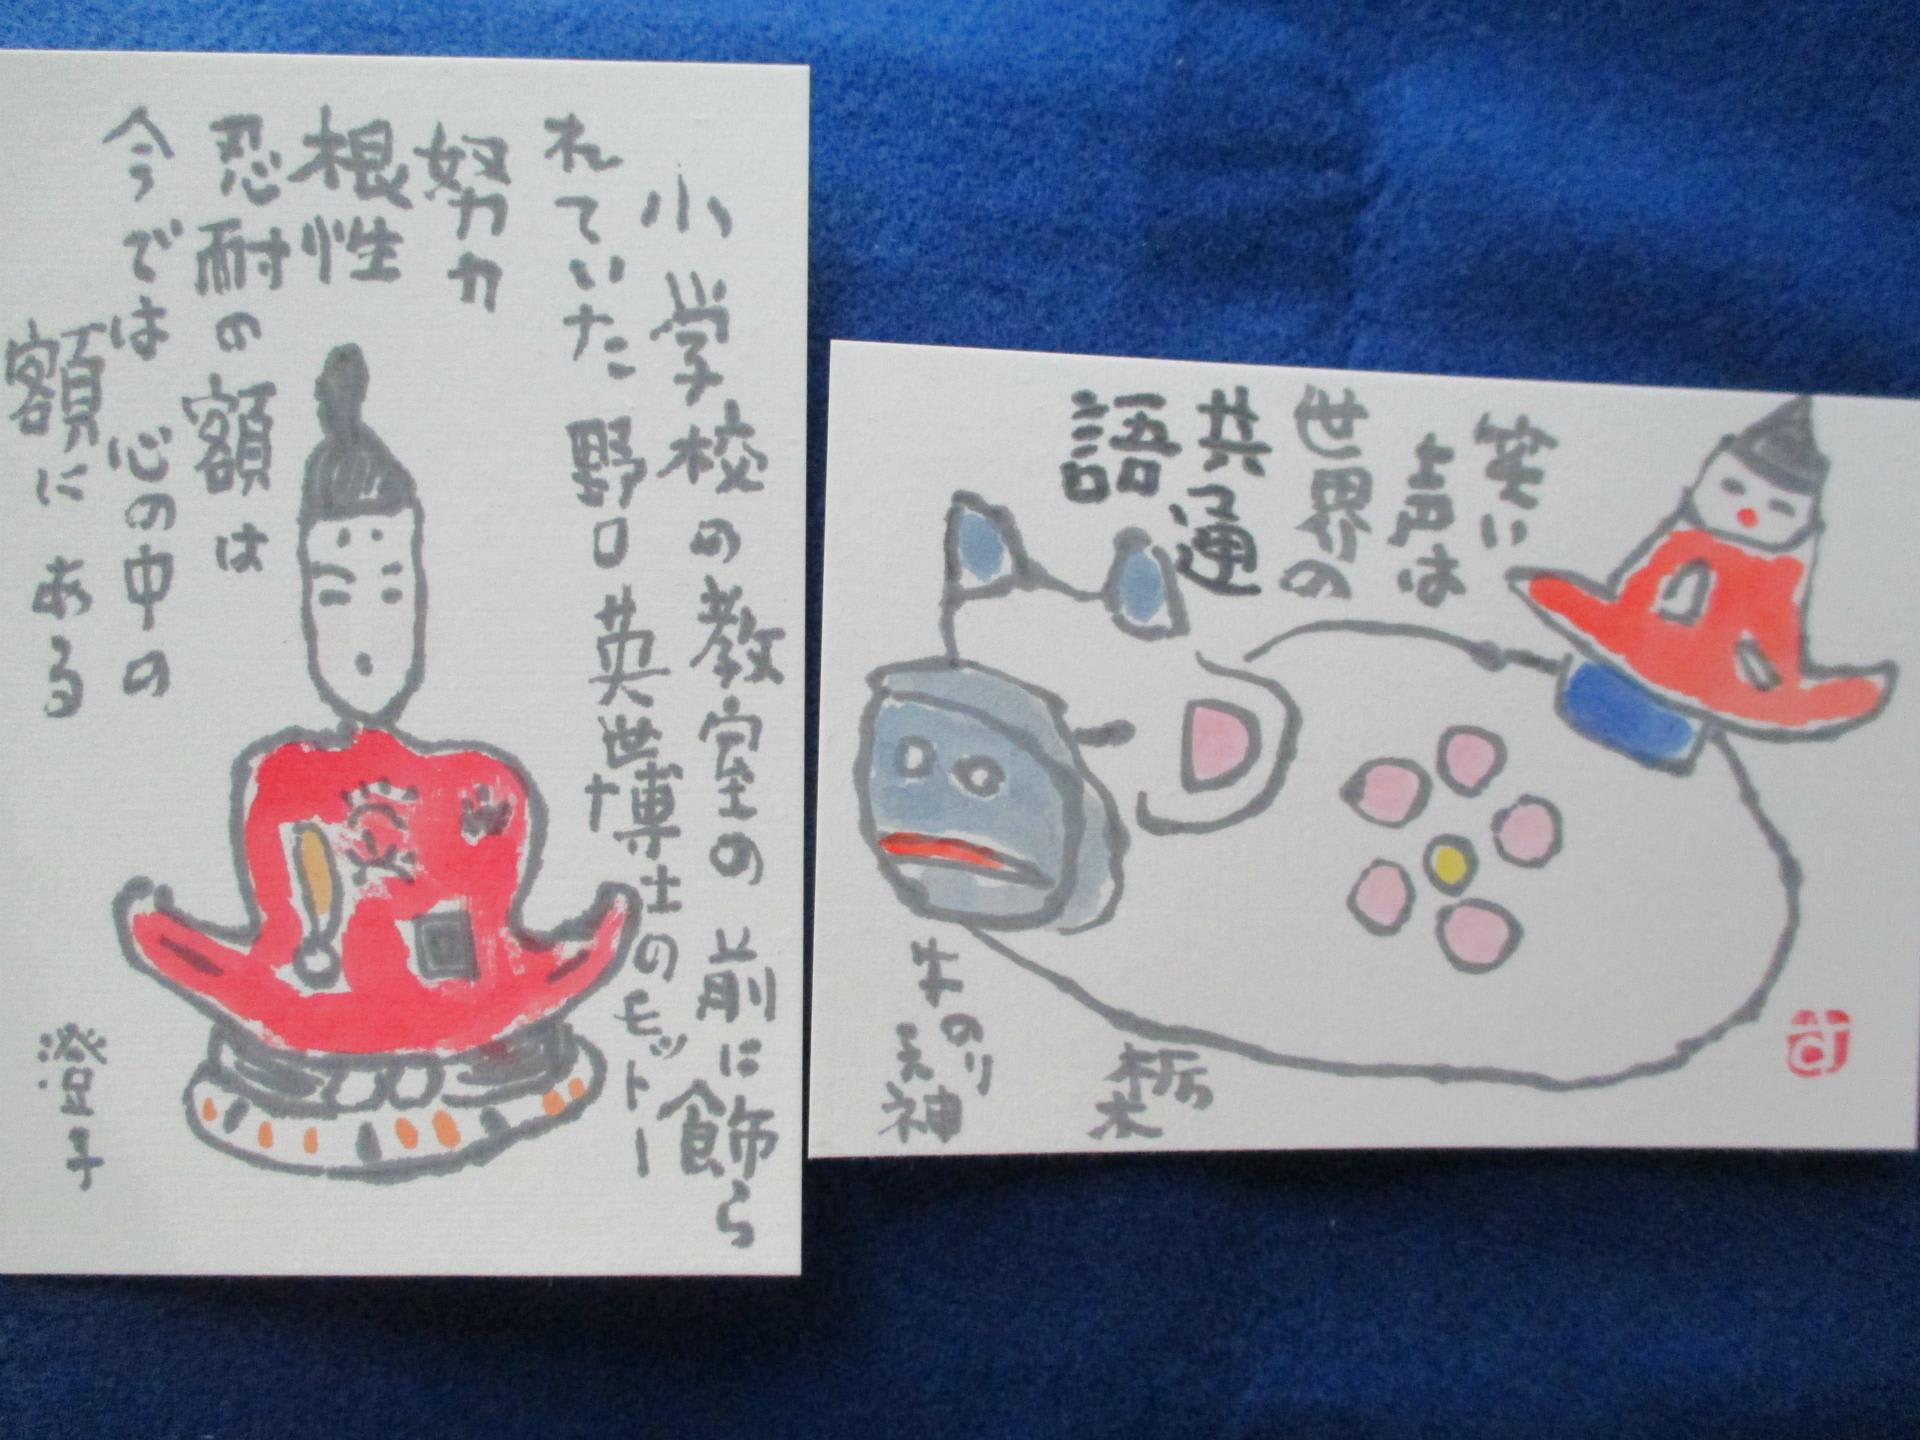 小学校の教室の前に飾ら
れていた野口英世博士のモットー
努力
根性
忍耐の額は
今では心の中の
額にある
澄子
笑い
声は
世界の
共通
語
牛のり
天神
栃木